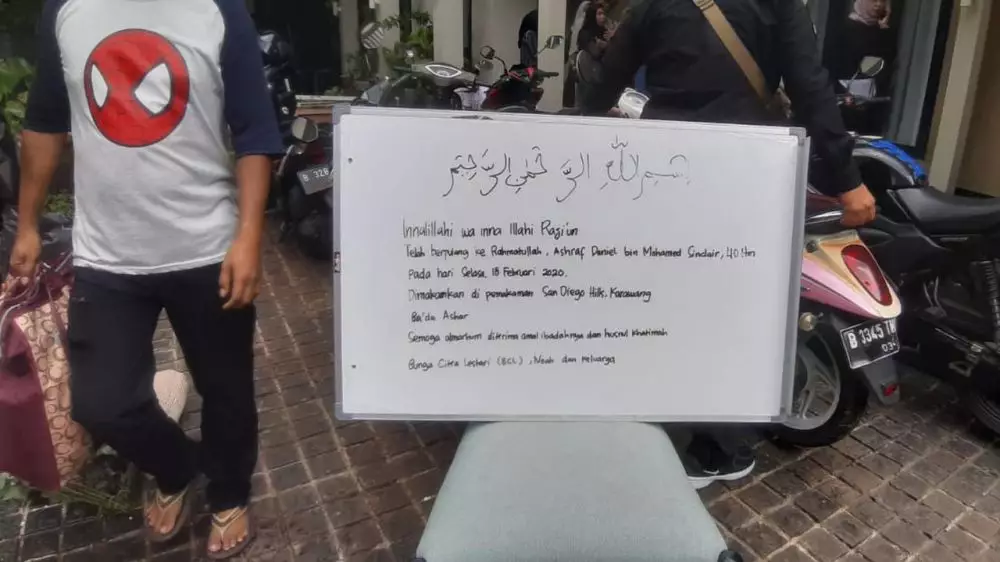 بسم الله الرحمن الرحيم
Innalillahi wa inna Illahi Raji'un
Telah berpulang ke Rahmatullah, Ashraf Daniel bin Mohamed Sinclair, 40 thn
Pada hari Selasa, 18 Februari 2020.
Dimakamkan di pemakaman San Diego Hills, Karawang
Ba'da Ashar
Semoga almarhum diterima amal ibadahnya dan husnul khatimah
Bunga Citra Lestari (BCL), Noah dan keluarga
B 3345
B 328